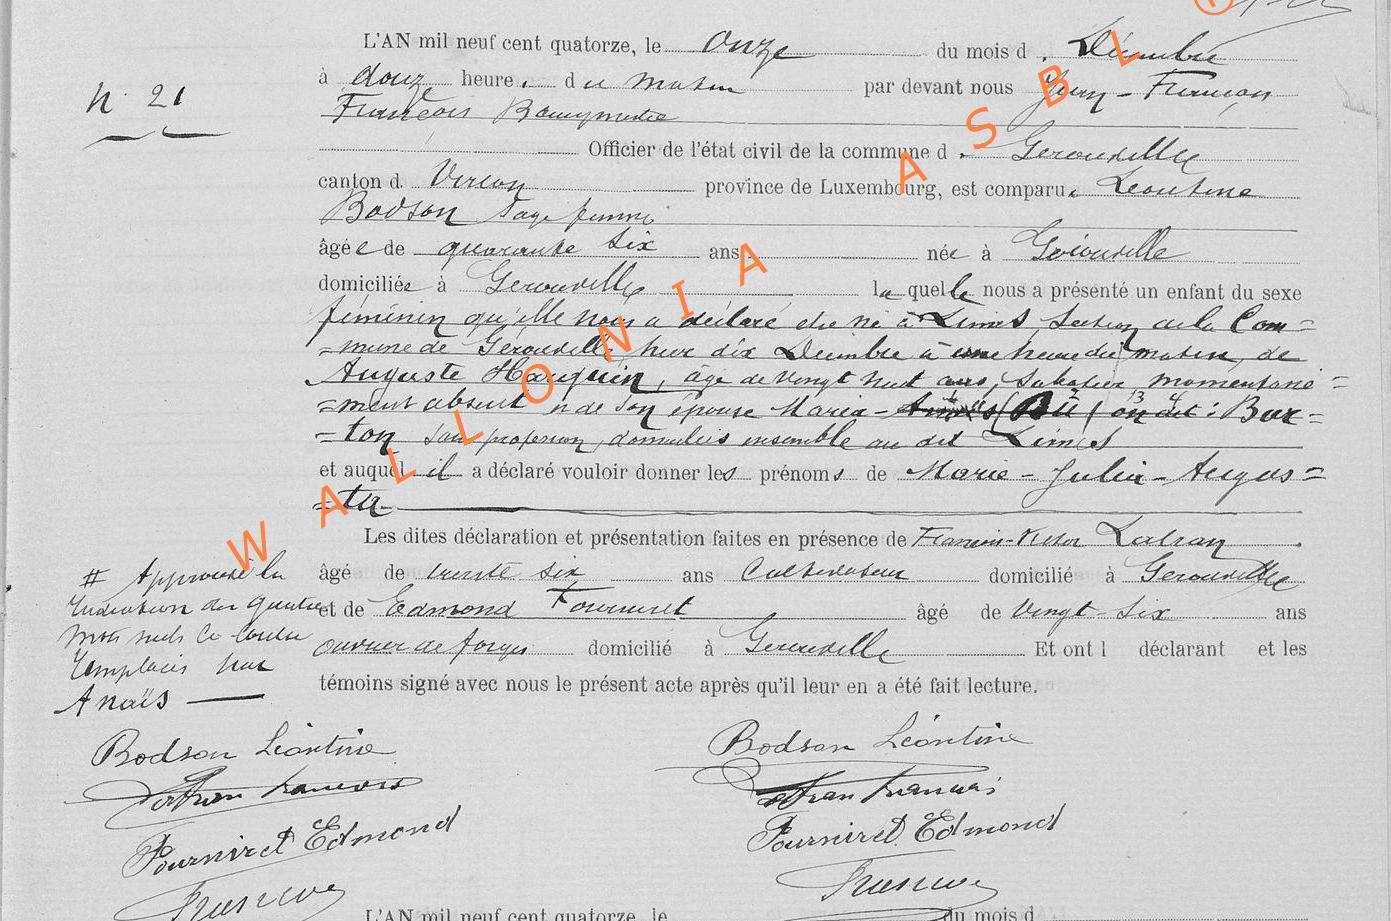 L'AN mil neuf cent quatorze, le onze du mois d Décembre
N° 21
à douze heure. du matin par devant nous Jean-François
François
Officier de l'état civil de la commune d Gérouville
canton d. Virton province de Luxembourg, est comparu. Léontine
Bodson sage femme
âgée de quarante six ans née à Gérouville
domiciliée à Gerouville laquelle nous a présenté un enfant du sexe
féminin qu'elle nous a déclaré être né à Limes, section de la Com=
=mune de Gérouville, hier dix Décembre à une heure du matin, de
Auguste Hauquin, âgé de vingt huit ans, sabotier, momentané=
=ment absent et de son épouse Maria- on dit: Bur=
=ton sans profession, domiciliés ensemble au dit Limes
et auquel il a déclaré vouloir donner les prénoms de Marie-Julia-Augus=
=ta
Les dites déclaration et présentation faites en présence de François-Victor Latran
âgé de trente six ans Cultivateur domicilié à Gerouville
et de Edmond Fourniret âgé de vingt-six ans
ouvrier de forges domicilié à Gerouville Et ont l déclarant et les
témoins signé avec nous le présent acte après qu'il leur en a été fait lecture.
# Approuvé la
des quatre
mots nuls ci-contre
remplacés par
Anaïs
Bodson Léontine Bodson Léontine
Latran François Latran François
Fourniret Edmond Fourniret Edmond
L'AN mil neuf cent quatorze, le du mois d
WALLONIA ASBL